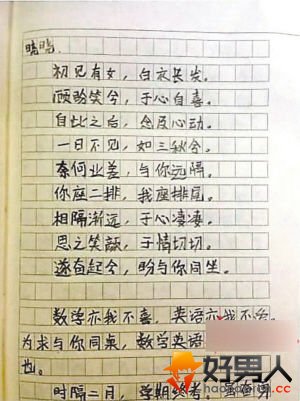 晓晓:
初见有女，白衣长发。
顾盼笑兮，于心自喜。
自此之后，念及心动。
一日不见，如三秋兮。
奈何业差，与你远隔。
你座二排，我座排尾。
相隔渐远，于心凄凄。
思之笑颜，于情切切。
遂奋起兮，盼与你同坐。
数学亦我不喜，英语亦我不
为求与你同桌，数学英语
也。
时隔二月，学期终考，
好男人
haonanren.cc